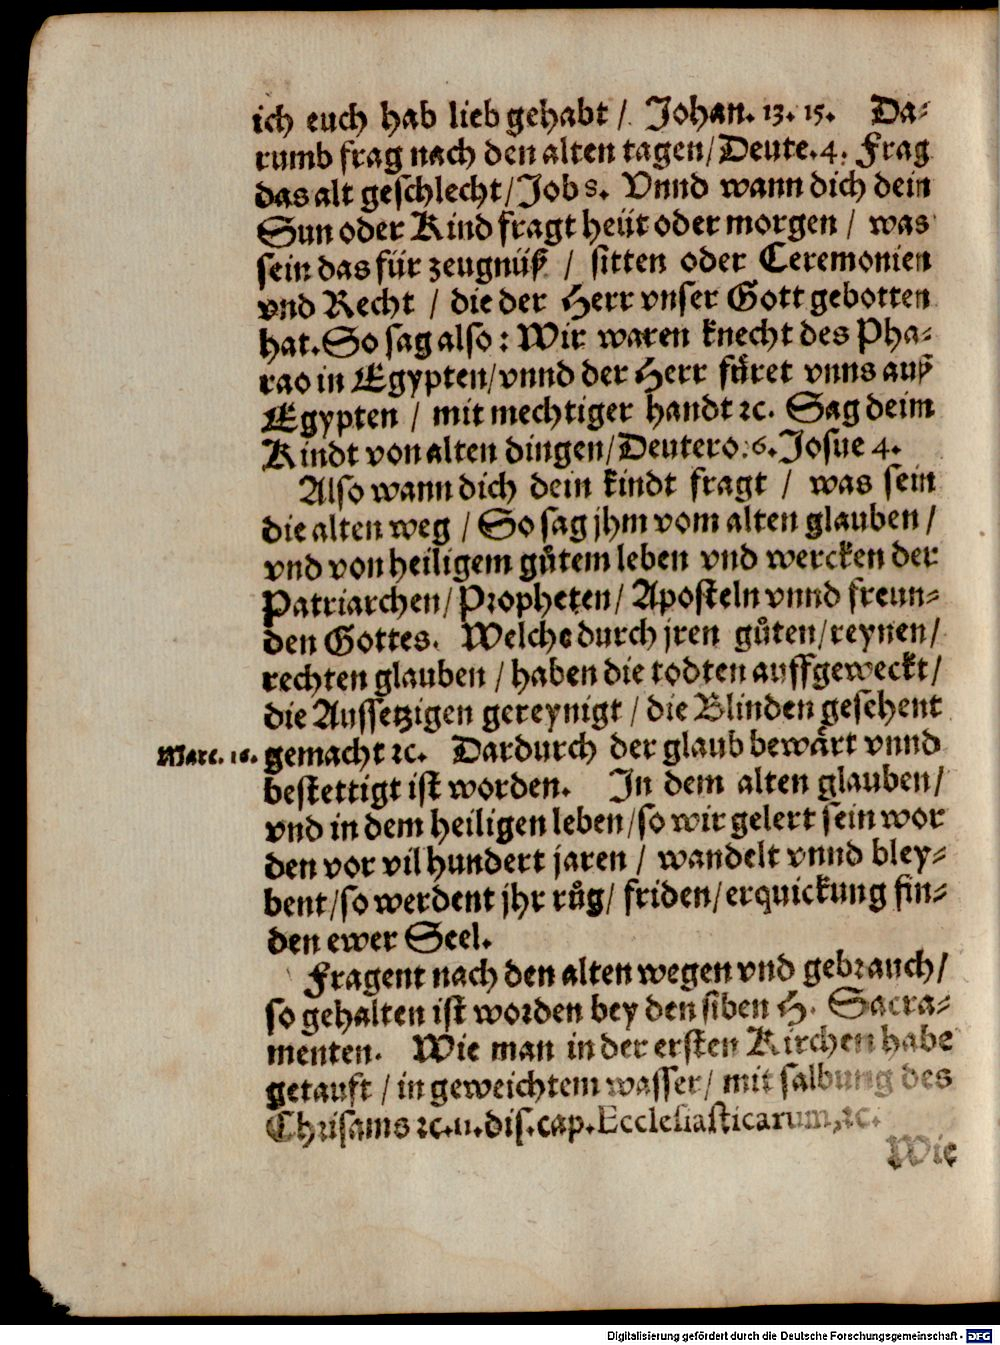 ich euch hab lieb gehabt / Johan. 13. 15. Da-
rumb frag nach den alten tagen / Deute. 4. Frag
das alt geschlecht / Job 8. Vnnd wann dich dein
Sun oder Kind fragt heüt oder morgen / was
sein das für zeugnüß / sitten oder Ceremonien
vnd Recht / die der Herr vnser Gott gebotten
hat. So sag also: Wir waren knecht des Pha-
rao in Egypten / vnnd der Herr fůret vnns auß
Egypten / mit mechtiger handt ꝛc. Sag deim
Kindt von alten dingen / Deutero. 6. Josue 4.
Also wann dich dein kindt fragt / was sein
die alten weg / So sag jhm vom alten glauben /
vnd von heiligem gůtem leben vnd wercken der
Patriarchen / Propheten / Aposteln vnnd freun-
den Gottes. Welche durch jren gůten / reynen /
rechten glauben / haben die todten auffgeweckt /
die Aussetzigen gereynigt / die Blinden gesehent
Marc. 16. gemacht ꝛc. Dardurch der glaub bewårt vnnd
bestettigt ist worden. In dem alten glauben /
vnd in dem heiligen leben / so wir gelert sein wor
den vor vil hundert jaren / wandelt vnnd bley-
bent / so werdent jhr růg / friden / erquickung fin-
den ewer Seel.
Fragent nach den alten wegen vnd gebrauch /
so gehalten ist worden bey den siben H. Sacra-
menten. Wie man in der ersten Kirchen habe
getauft / in geweichtem wasser / mit salbung des
Chrisams ꝛc. 11. dis. cap. Ecclesiasticarum, ꝛc.
Wie
Digitalisierung gefördert durch die Deutsche Forschungsgemeinschaft - DFG